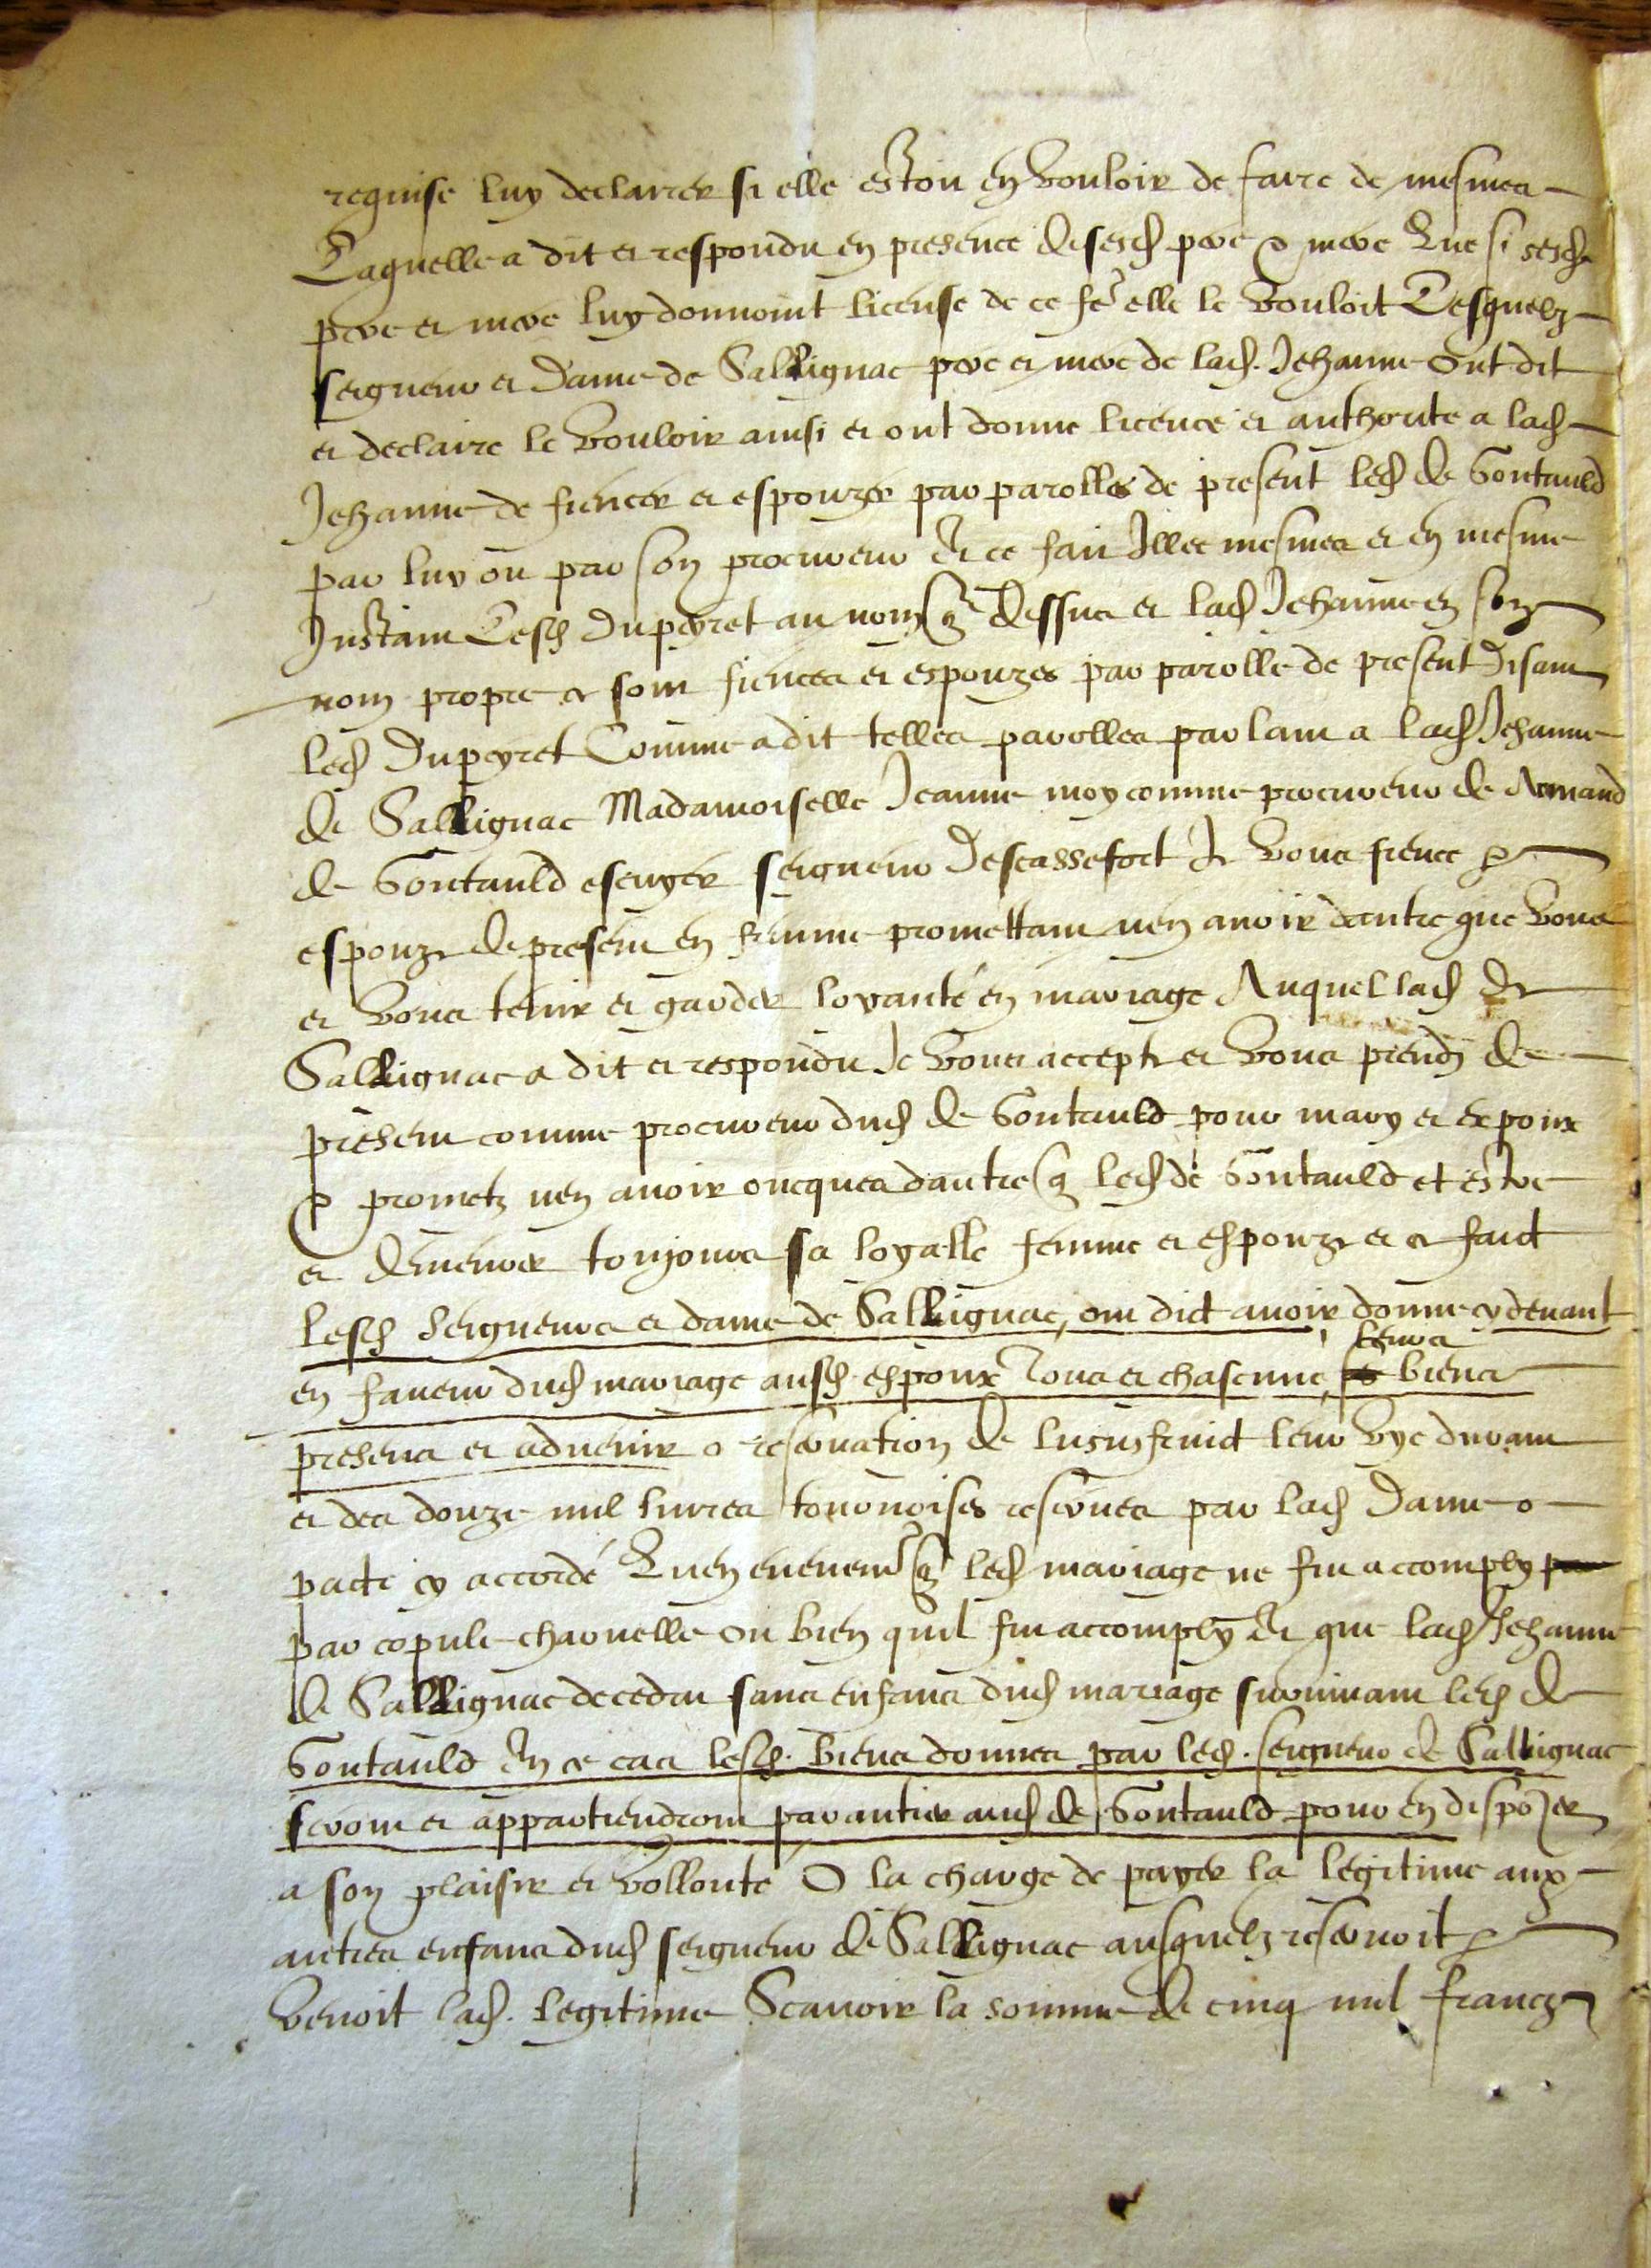 requise luy declarer si elle estoit en vouloir de faire de mesmes
Laquelle a dit et respondu en presence de sesd pere & mere Que si sesd
pere et mere luy donnoint license de ce fe elle le vouloit Lesquelz
seigneur et Dame de Sallignac pere et mere de lad. Jehanne Ont dit
et declaire le vouloir ainsi et ont donne licence et authorite a lad
Jehanne de fiencer et espouzer par parolles de present led de Gontauld
par luy ou par son procureur Et ce fait Illec mesmes et en mesme
Instant Lesd Dupeyret au nom q dessus et lad Jehanne en son
nom propre se sont fiences et espouzes par parolle de present Disant
led Dupeyret Comme a dit telles parolles parlant a lad Jehanne
de Sallignac Madamoiselle Jeanne moy comme procureur de Armand
de Gontauld escuyer seigneur Descassefort Je vous fience &
espouze de present en femme promettant nen avoir dautre que vous
et vous tenir et garder loyauté en mariage Auquel lad de
Sallignac a dit et respondu Je vous accepte et vous prendz de
present comme procureur dud de Gontauld pour mary et expoux
& prometz nen avoir oncques dautre q led de Gontauld et estre
et demeurer toujours sa loyalle femme et espouze et ce faict
lesd Seigneurs et dame de Sallignac, ont dict avoir donne cydevant
en faveur dud mariage ausd. espoux Tous et chascuns, leurs biens
presens et advenir o reservation de lususfruict leur vye durant
et des douze mil livres tournoises reserves par lad Dame o
pacte cy accordé Quen evenemt q led mariage ne fut accomply
par copule charnelle ou bien quil fut accomply Et que lad Jehanne
de Sallignac decedat sans enfans dud mariage survivant led de
Gontauld En ce cas lesd. biens donnes par led. seigneur de Sallignac
seront et appartiendront par antier aud de Gontauld pour en dispozer
a son plaisir et vollonte O la charge de payer la legitime aux
autres enfans dud seigneur de Sallignac ausquelz reservoit &
Venoit lad. legitime Scavoir la somme de cinq mil francz